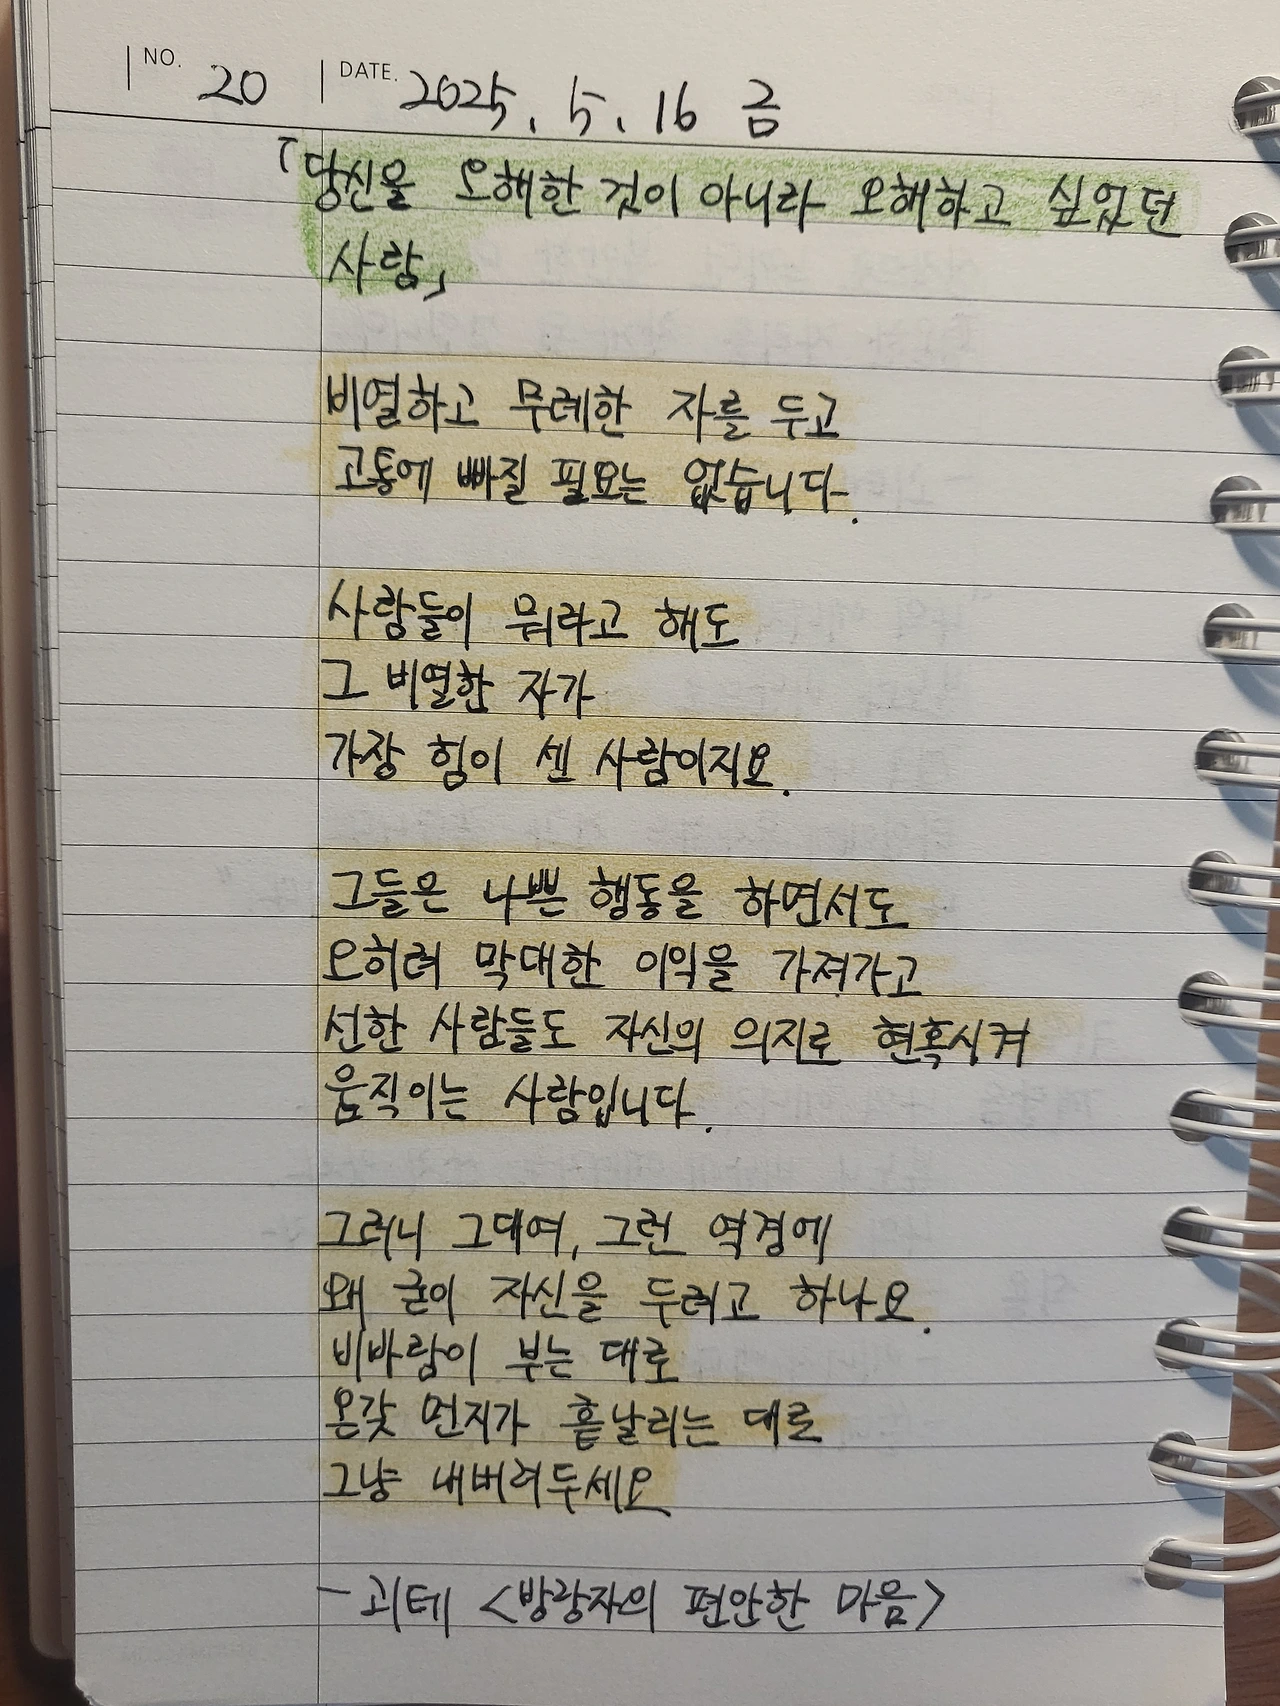 NO. 20 DATE. 2025. 5. 16 금
「당신을 오해한 것이 아니라 오해하고 싶었던
사람」
비열하고 무례한 자를 두고
고통에 빠질 필요는 없습니다.
사람들이 뭐라고 해도
그 비열한 자가
가장 힘이 센 사람이지요.
그들은 나쁜 행동을 하면서도
오히려 막대한 이익을 가져가고
선한 사람들도 자신의 의지로 현혹시켜
움직이는 사람입니다.
그러니 그대여, 그런 역경에
왜 굳이 자신을 두려고 하나요.
비바람이 부는 대로
온갖 먼지가 흩날리는 대로
그냥 내버려두세요
- 괴테 <방랑자의 편안한 마음>